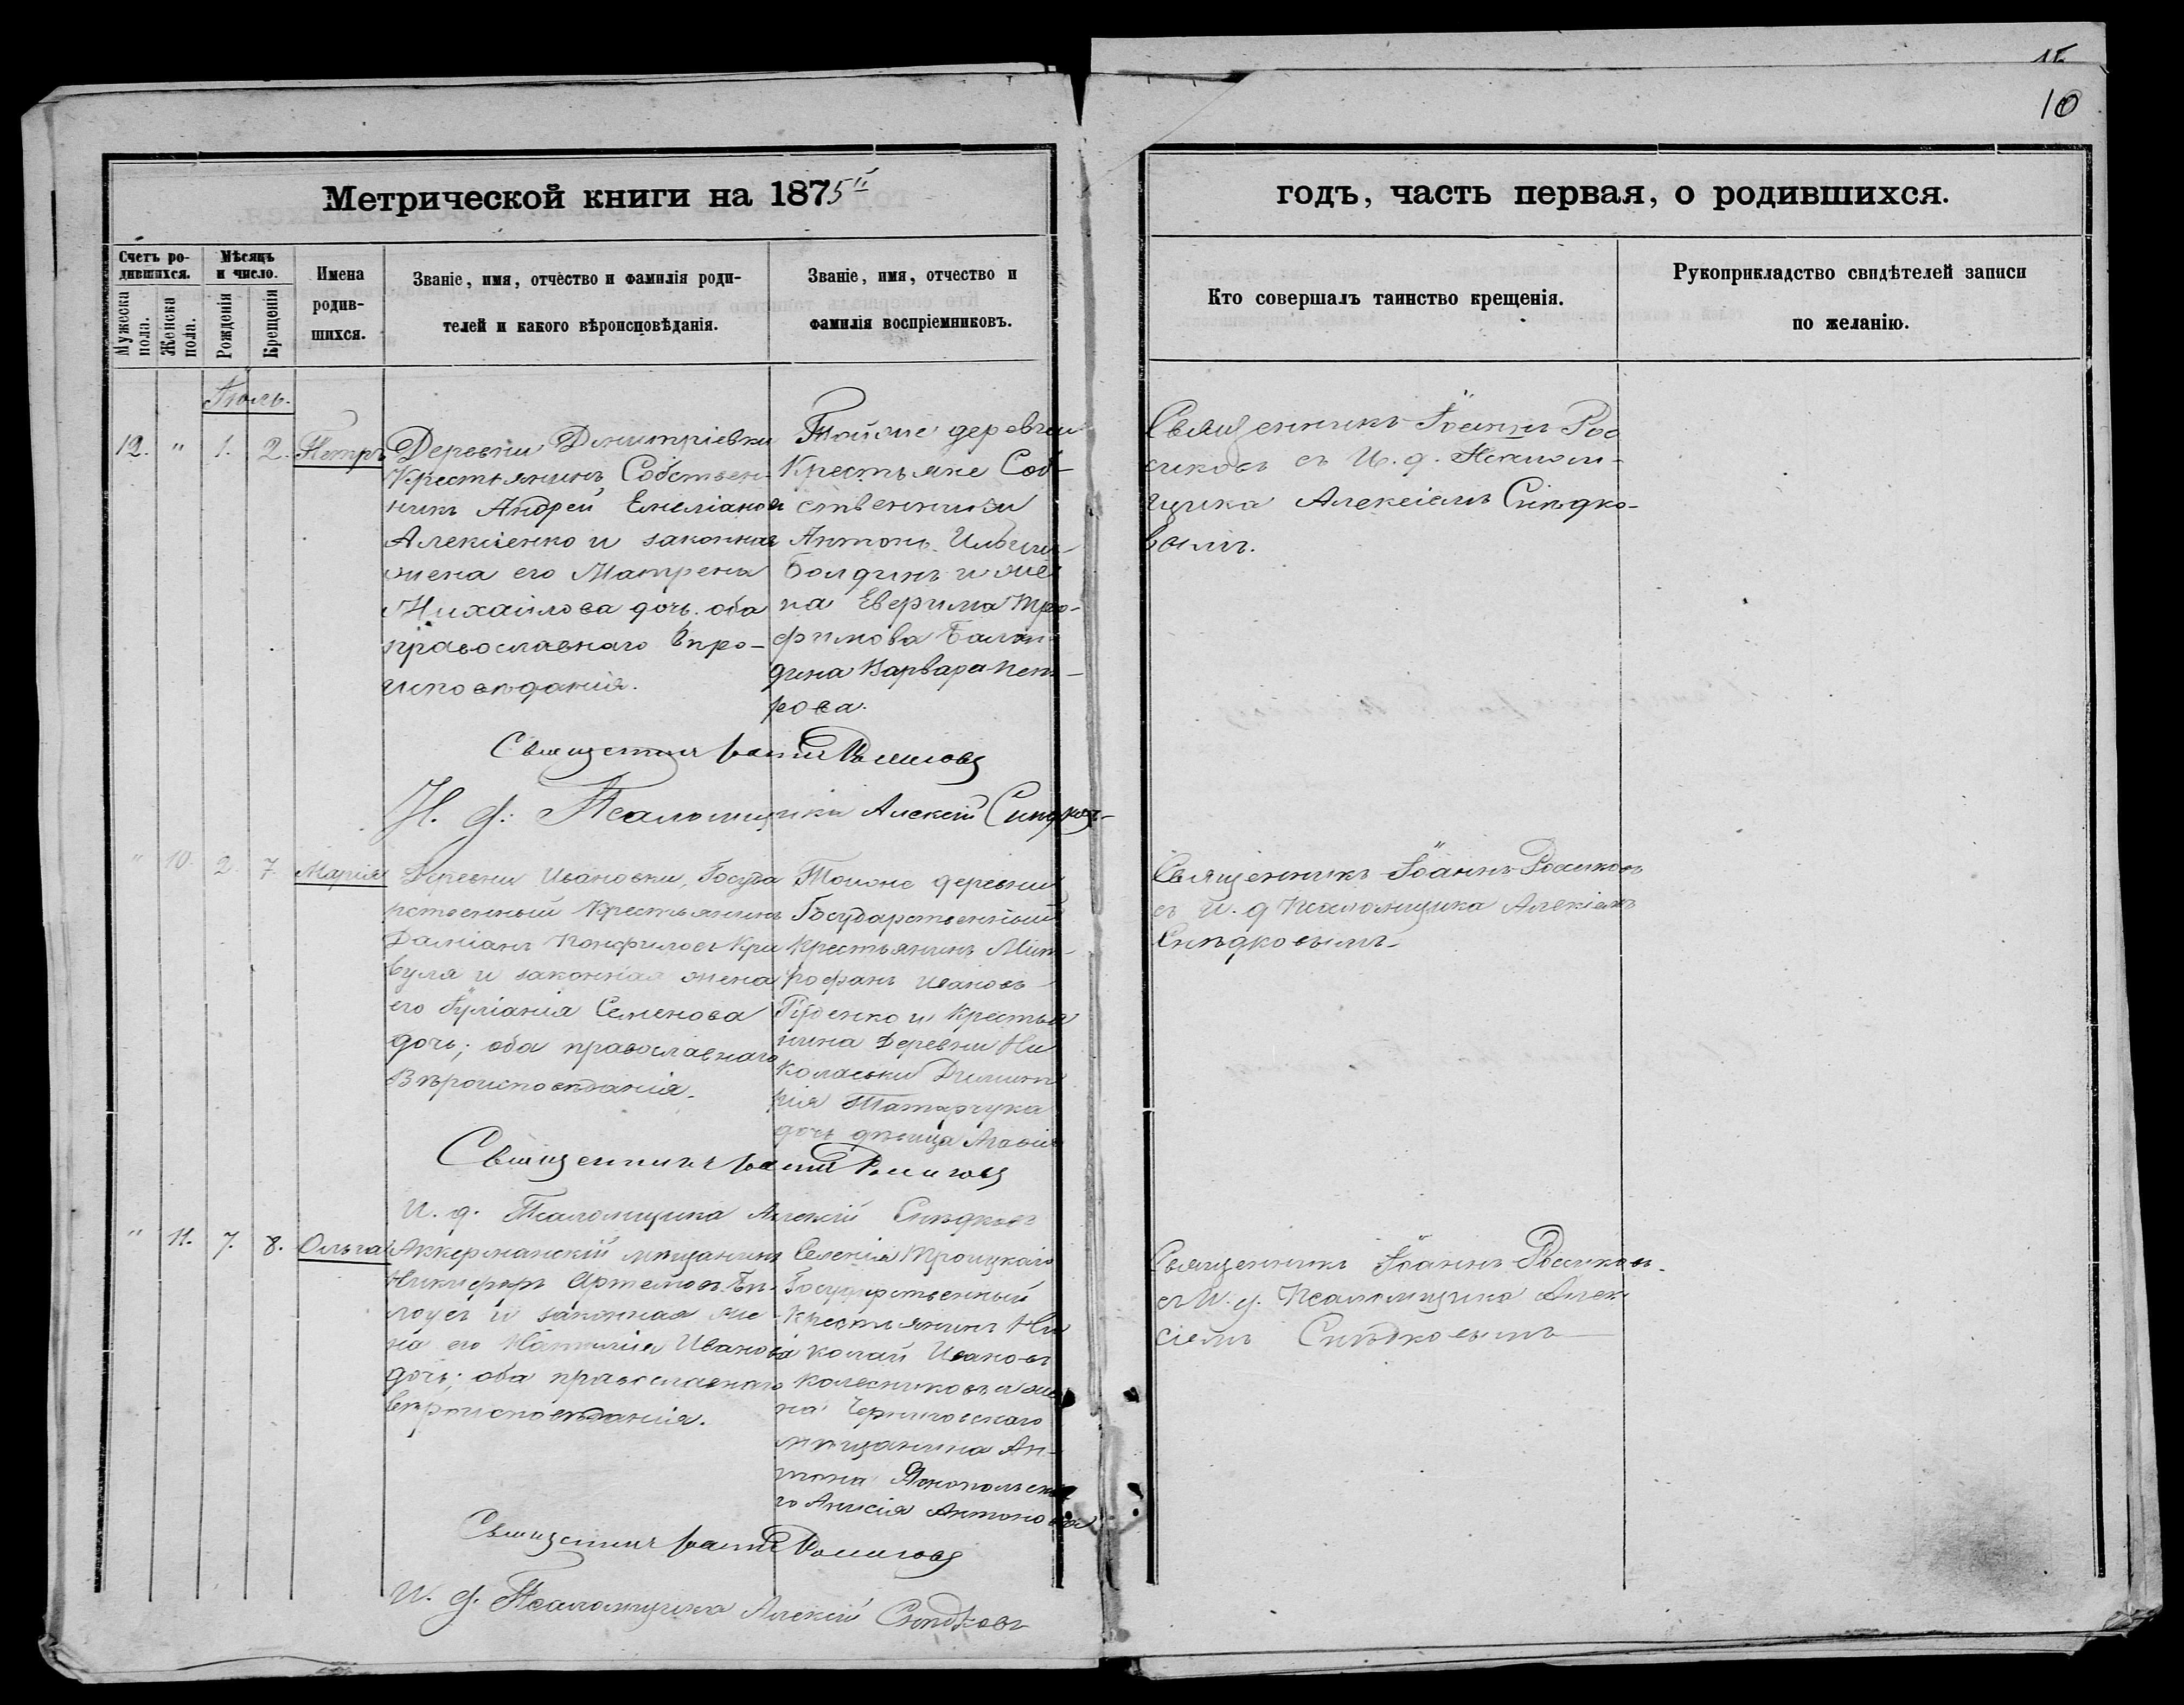 15
10
Метрической книги на 1875й
годъ, часть первая, о родившихся.
Счетъ ро-
дившихся.
Мужеска
пола.
Женска
пола.
Мѣсяцъ
и число.
Рожденія
Крещенія
Имена
родив-
шихся.
Званіе, имя, отчество и фамилія роди-
телей и какого вѣроисповѣданія.
Званіе, имя, отчество и
фамилія воспріемниковъ.
Кто совершалъ таинство крещенія.
Рукоприкладство свидѣтелей записи
по желанію.
Іюль.
12. " 1. 2. Петръ
Деревни Дмитріевки
Крестьянинъ Собствен-
никъ Андрей Емеліановъ
Алексіенко и законная
жена его Матрена
Михайлова дочь оба
православнаго вѣро-
исповѣданія.
Тойже деревни
Крестьяне Соб-
ственники
Антонъ Ильинъ
Болдинъ и же
на Тро-
фимова
дина Варвара Пет-
рова.
Священникъ Іоаннъ Рос
сиковъ съ И. д. Псалом-
щика Алексіемъ Сѣдко-
вымъ.
Священникъ Іоаннъ Россиковъ
И. д. Псаломщика Алексій
" 10 2 7. Марія
Деревни Ивановки, Госуда
рственный Крестьянинъ
Даміанъ Панфиловъ Кри
вуля и законная жена
его Іуліанія Семенова
дочь; оба православнаго
Вѣроисповѣданія.
Тойже деревни
Государственный
Крестьянинъ Мит-
рофанъ Ивановъ
Руденко и Крестья
нина Деревни Ни
колаевки Димит
рія Татарчука
дочь дѣвица
Священникъ Іоаннъ Россиковъ
съ И. д Псаломщика Алексіемъ
Священникъ Іоаннъ Россиковъ
И. д. Псаломщика Алексій
" 11. 7. 8. Ольга
Аккерманскій мѣщанинъ
Никифоръ Артемовъ Бѣ-
лоусъ и законная же
на его Наталія Иванова
дочь; оба православнаго
вѣроисповѣданія.
Селенія Троицкаго
Государственный
Крестьянинъ Ни
колай Ивановъ
Колесниковъ и же
на Черниговскаго
мѣщанина Ан-
тона
го Анисія Антонова
Священникъ Іоаннъ Россиковъ
съ И. д. Псаломщика Алек
сіемъ
Священникъ Іоаннъ Россиковъ
И. д. Псаломщика Алексій